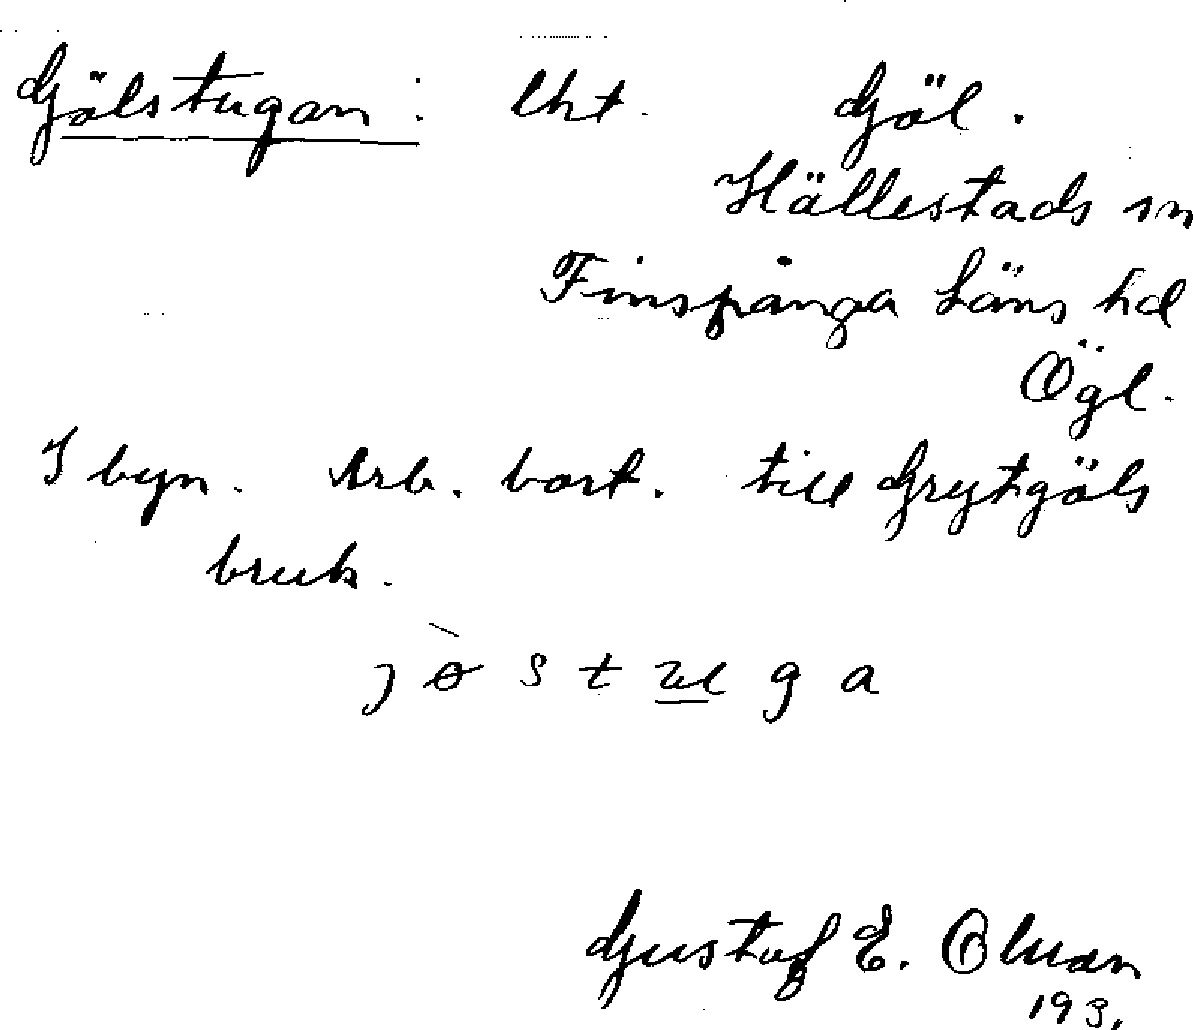 Gjölstugan : lht. Gjöl.
Hällestads sn
Finspånga Läns hd
Ögl.
I byn. Arb. bost. till Grytgöls
bruk.
j ö s t u g a
Gustaf E. Olman
193.